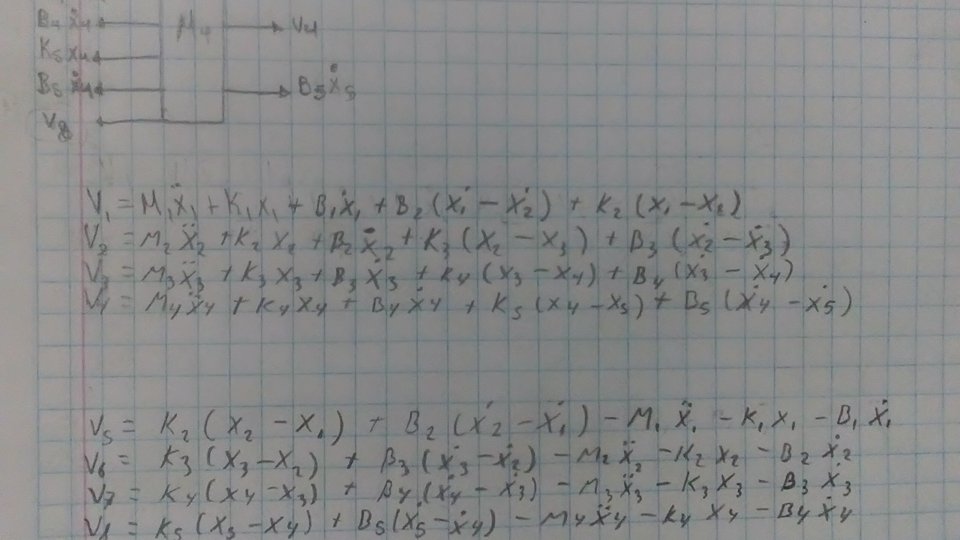 B4 ẋ4 M4 V4
K5 x4
B5 ẋ4 B5 ẋ5
V8
V1 = M1ẍ1 + K1x1 + B1ẋ1 + B2 (ẋ1 − ẋ2) + K2 (x1 − x2)
V2 = M2ẍ2 + K2 x2 + B2ẋ2 + K3 (x2 − x3) + B3 (ẋ2 − ẋ3)
V3 = M3ẍ3 + K3x3 + B3ẋ3 + K4 (x3 − x4) + B4 (ẋ3 − ẋ4)
V4 = M4ẍ4 + K4x4 + B4ẋ4 + K5 (x4 − x5) + B5 (ẋ4 − ẋ5)
V5 = K2 (x2 − x1) + B2 (ẋ2 − ẋ1) − M1 ẍ1 − K1 x1 − B1 ẋ1
V6 = K3 (x3 − x2) + B3 (ẋ3 − ẋ2) − M2 ẍ2 − K2 x2 − B2 ẋ2
V7 = K4 (x4 − x3) + B4 (ẋ4 − ẋ3) − M3 ẍ3 − K3 x3 − B3 ẋ3
V8 = K5 (x5 − x4) + B5 (ẋ5 − ẋ4) − M4 ẍ4 − K4 x4 − B4 ẋ4